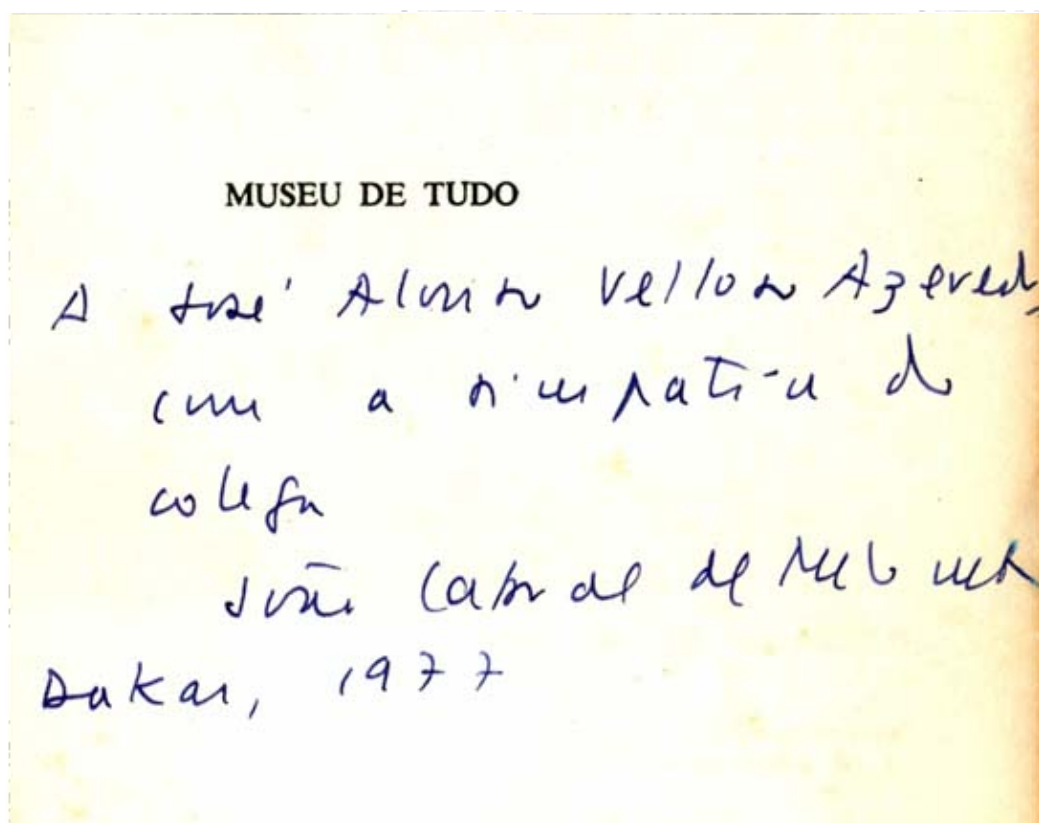 MUSEU DE TUDO
A José Aloisio Velloso Azevedo,
com a simpatia do
colega
João Cabral de Melo Neto
Dakar, 1977